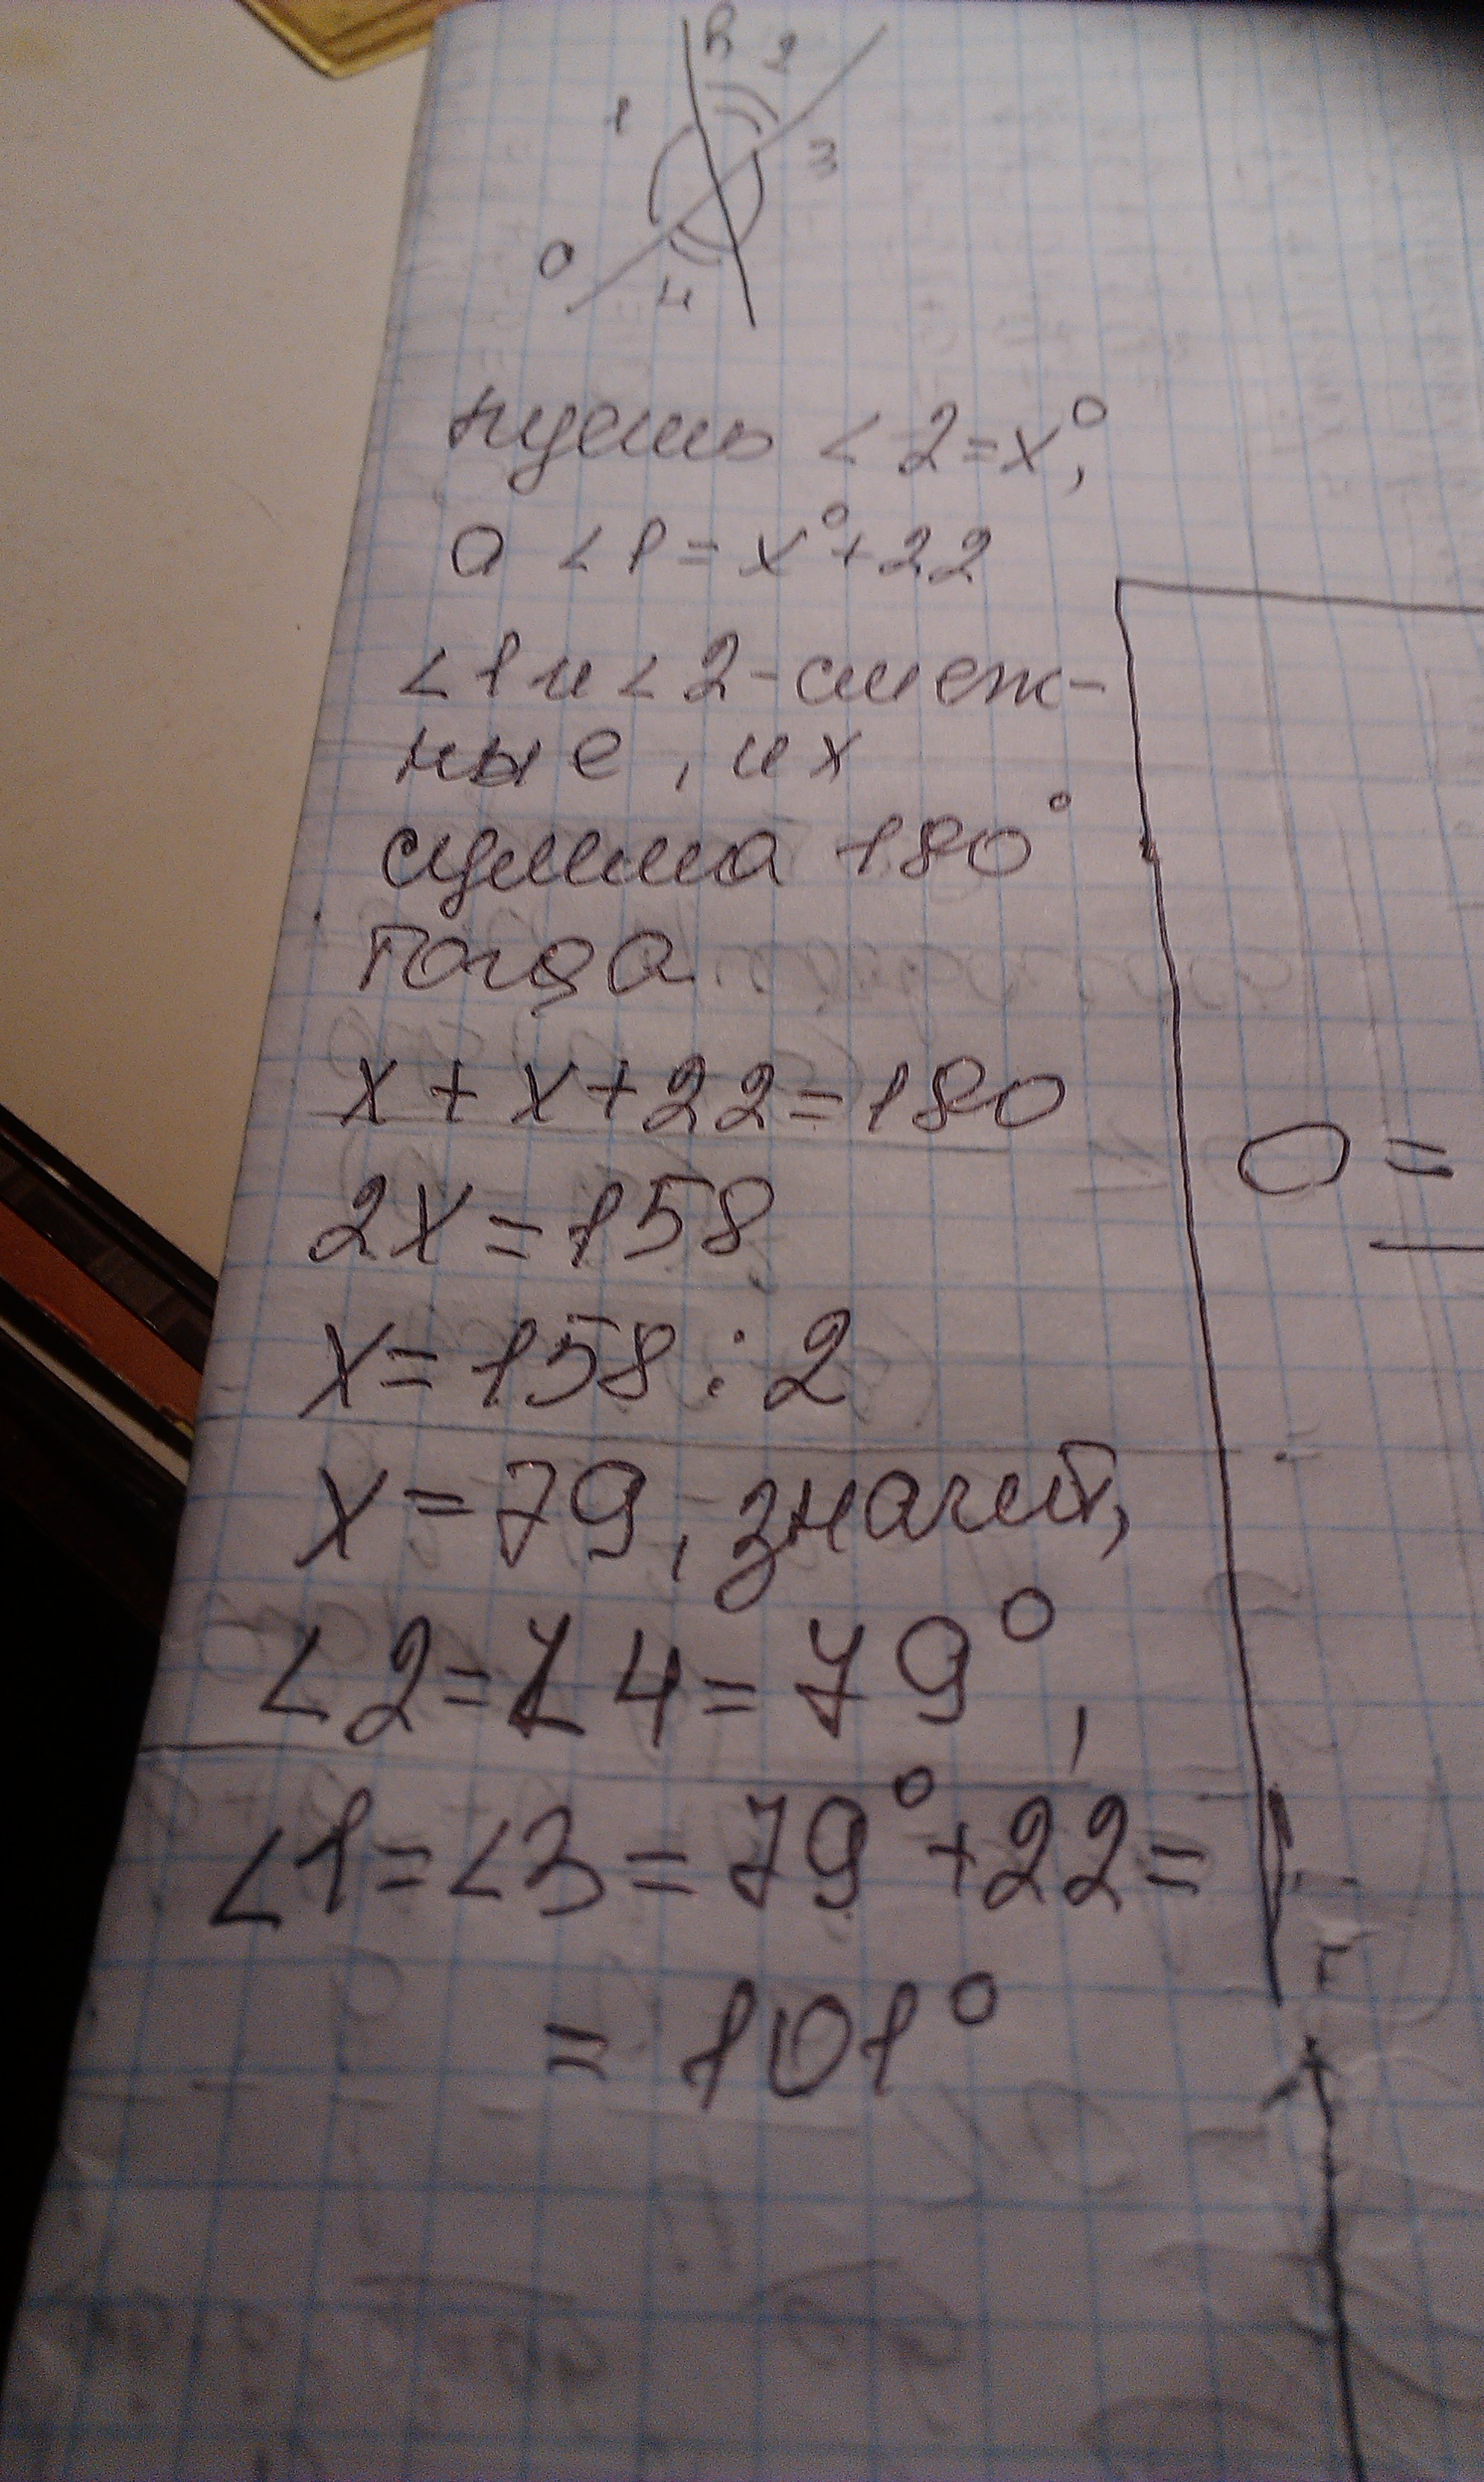 в 2
1
3
а
4
пусть <2=x°,
а <1=x°+22
<1 и <2-смеж-
ные, их
сумма 180°
тогда
x+x+22=180
2x=158
x=158:2
x=79, значит,
<2=<4=79°,
<1=<3=79°+22=
=101°
0=